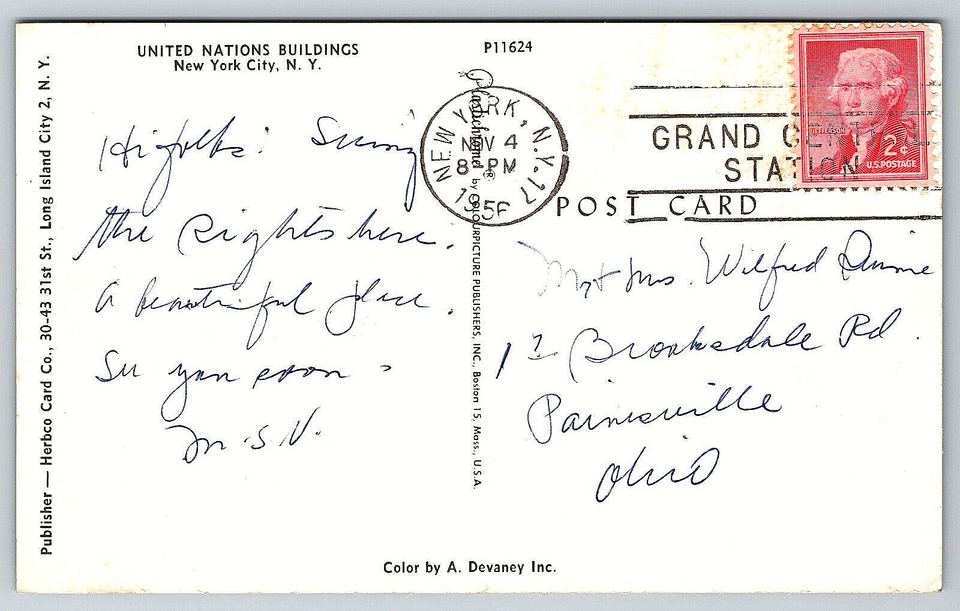 UNITED NATIONS BUILDINGS
New York City, N. Y.
P11624
Publisher — Herbco Card Co., 30-43 31st St., Long Island City 2, N. Y.
Hi folks: Seeing
the sights here.
A beautiful place.
See you soon
M.S.N.
Plastichrome® by COLOURPICTURE PUBLISHERS, INC., Boston 15, Mass., U.S.A.
NEW YORK, N.Y. 17
NOV 4
8 PM
GRAND CENTRAL
STATION
JEFFERSON
2¢
U.S. POSTAGE
POST CARD
Mr + Mrs. Wilfred
Brooksdale Rd.
Painesville
Ohio
Color by A. Devaney Inc.